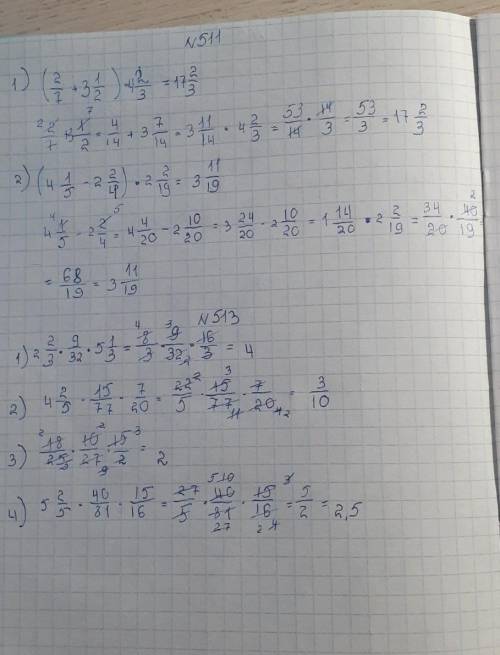 N511
1) (2/7 + 3 1/2) · 4 2/3 = 17 2/3
2/7 + 3 1/2 = 4/14 + 3 7/14 = 3 11/14 · 4 2/3 = 53/14 · 14/3 = 53/3 = 17 2/3
2) (4 1/5 - 2 2/4) · 2 2/19 = 3 11/19
4 1/5 - 2 2/4 = 4 4/20 - 2 10/20 = 3 24/20 - 2 10/20 = 1 14/20 · 2 2/19 = 34/20 · 40/19 =
= 68/19 = 3 11/19
N513
1) 2 2/3 · 9/32 · 5 1/3 = 8/3 · 9/32 · 16/3 = 4
2) 4 2/5 · 15/77 · 7/20 = 22/5 · 15/77 · 7/20 = 3/10
3) 18/25 · 10/27 · 15/2 = 2
4) 5 2/5 · 40/81 · 15/16 = 27/5 · 40/81 · 15/16 = 5/2 = 2,5